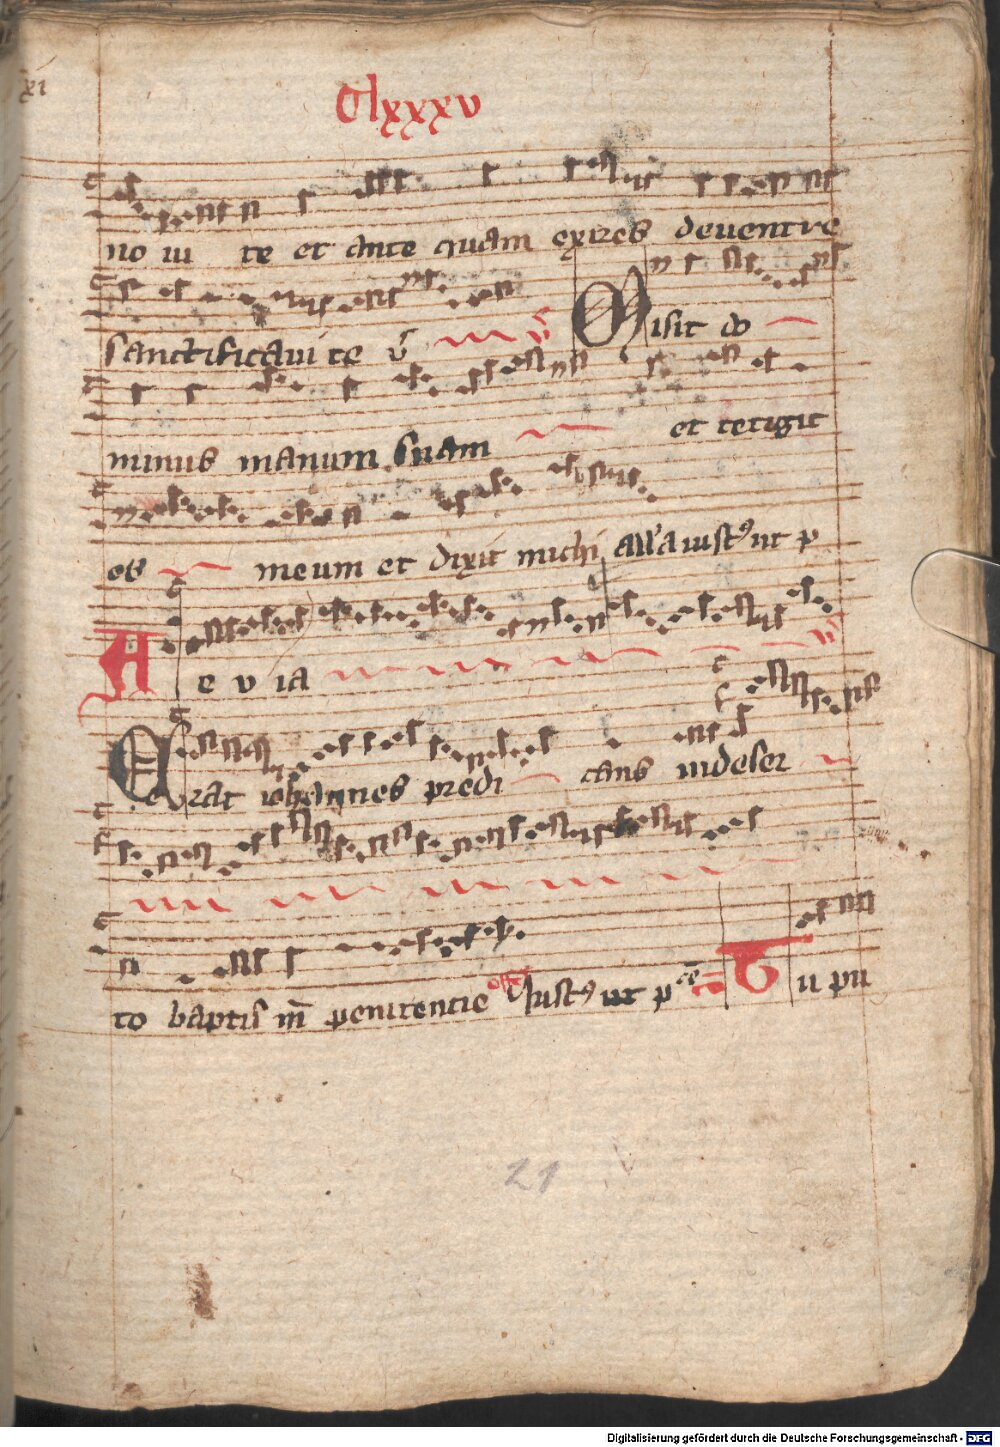 xi
Clxxxv
no ui te et ante quam exires deuentre
sanctificaui te v̉ v̉ Misit do
minus manum suam et tetigit
os meum et dixit michi all'a iust⁹ ut p
A e v ia v̉
Erat iohannes predi cans indeser
to baptis m̄ penitencie off Iust⁹ ut p co T u pu
21
Digitalisierung gefördert durch die Deutsche Forschungsgemeinschaft - DFG